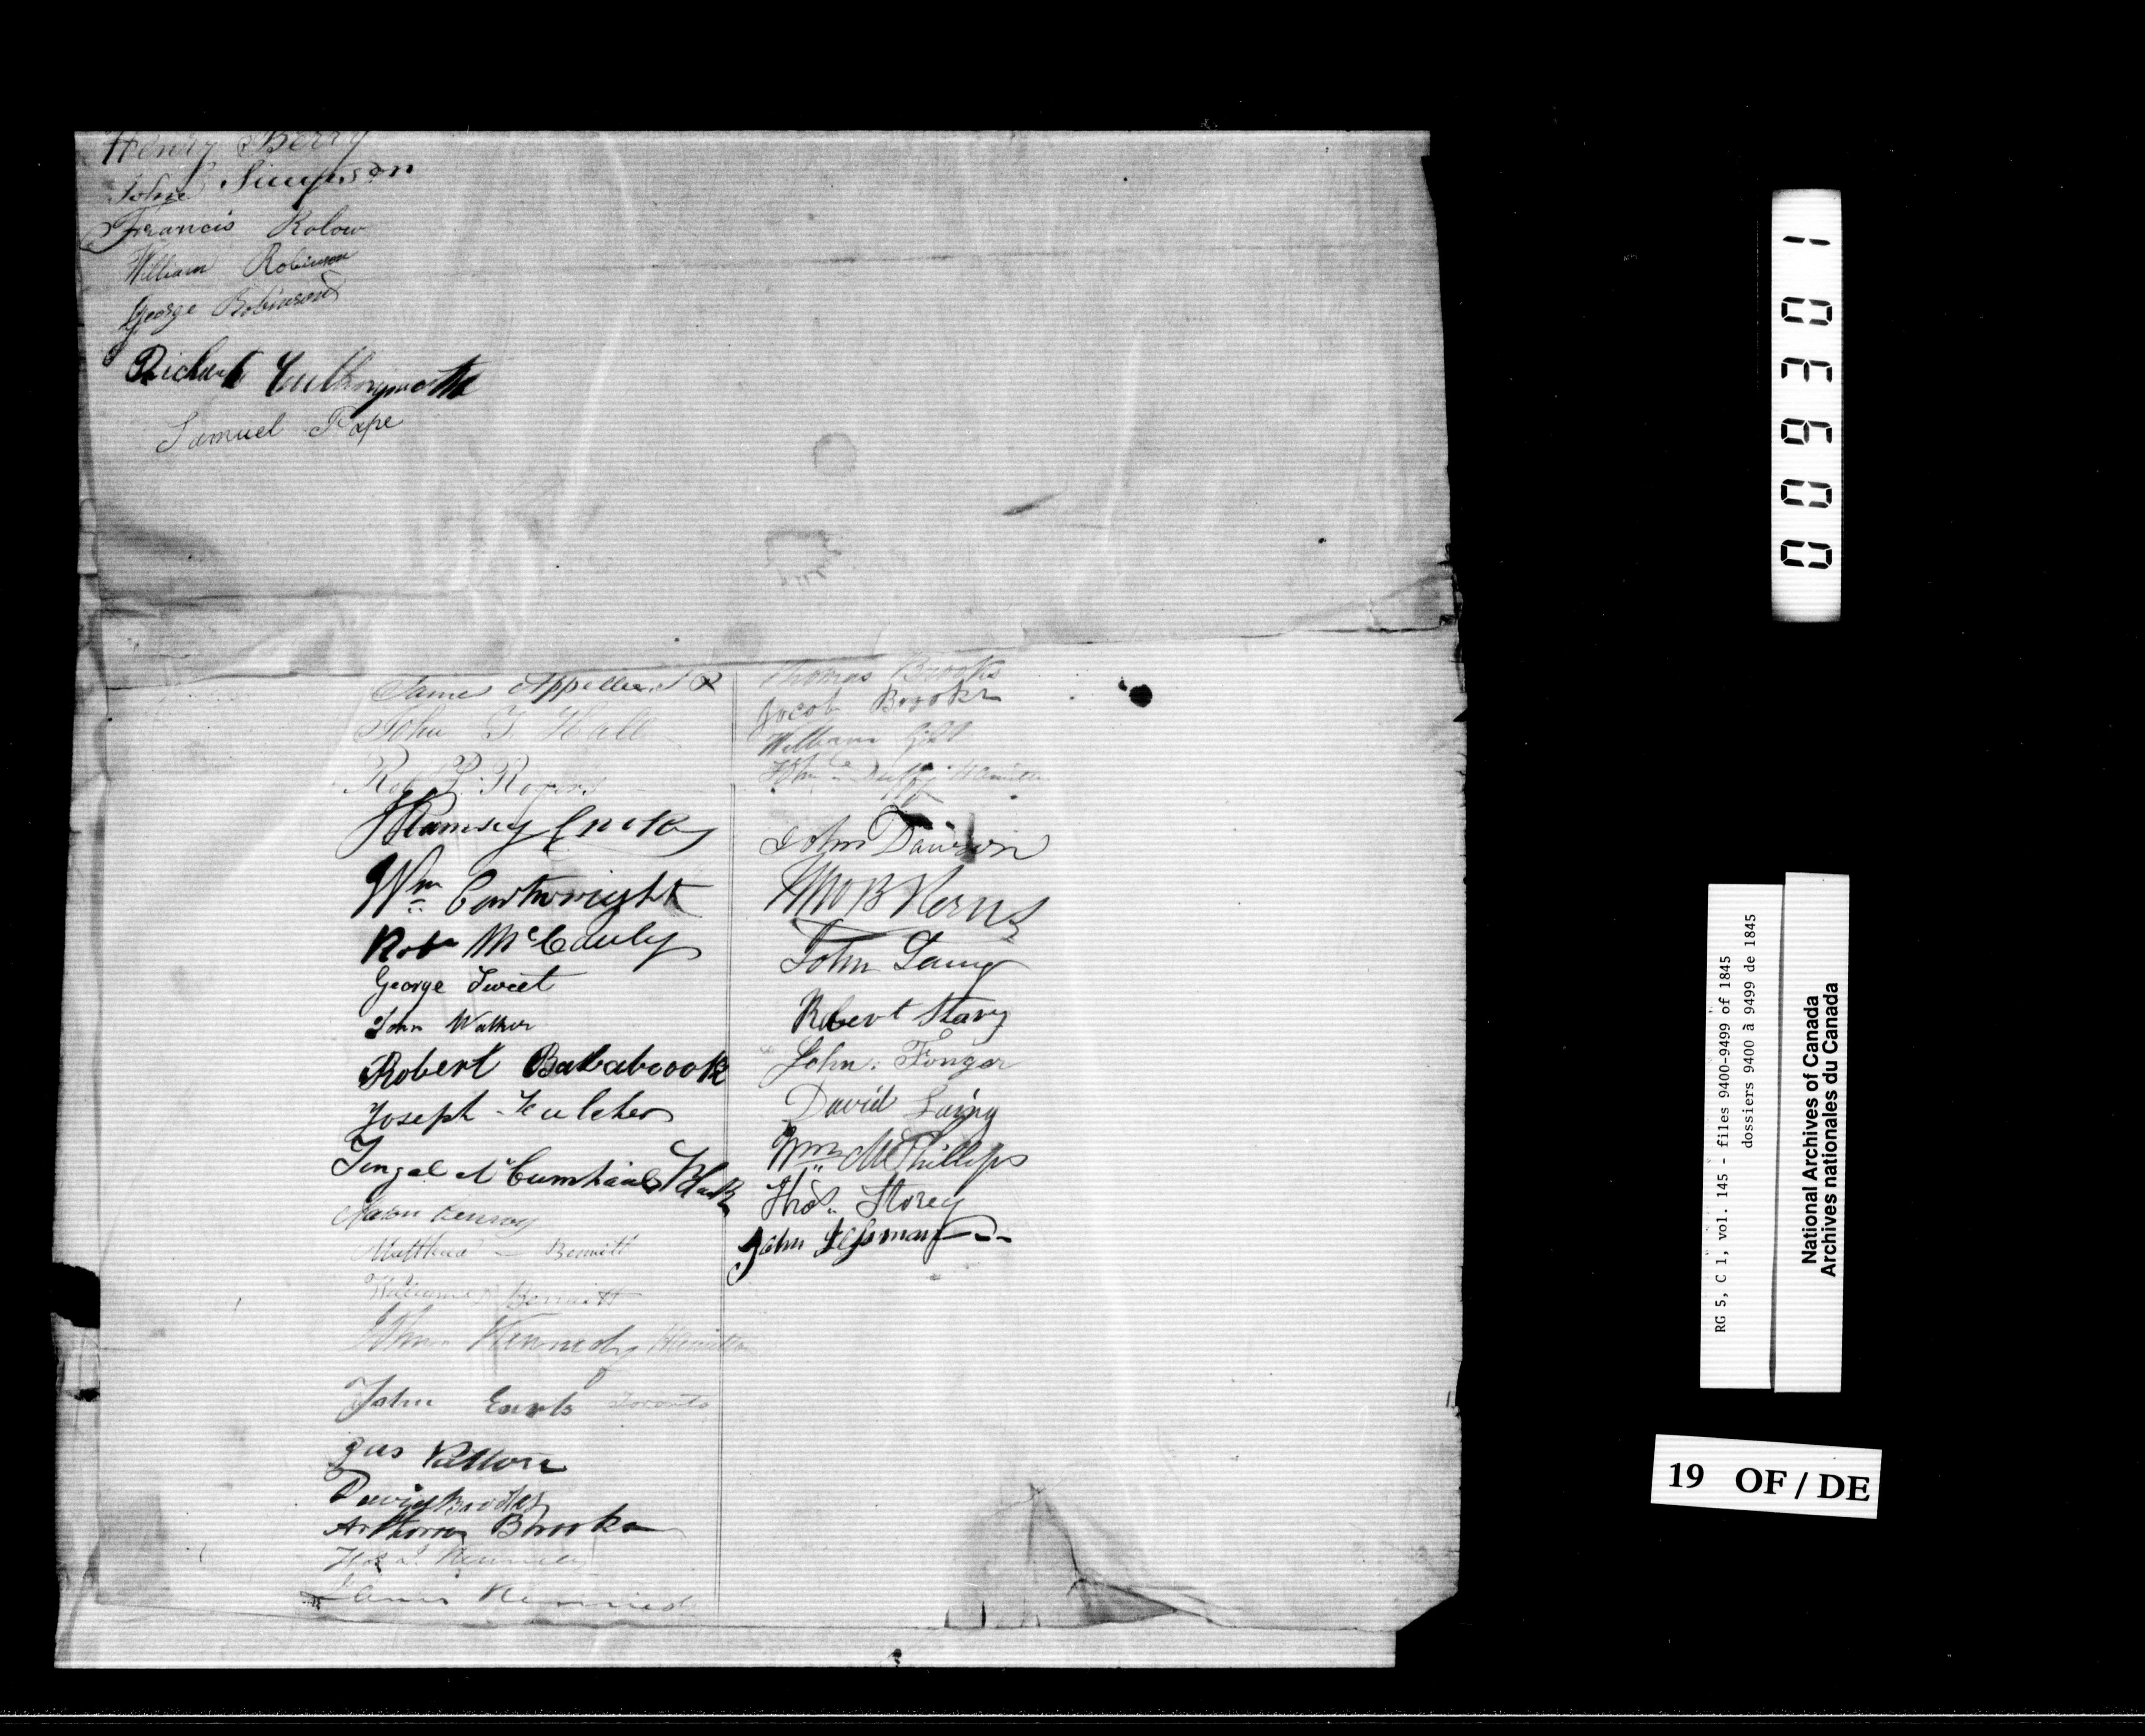 Henry Berry
John Simpson
Francis Rolow
William Robinson
George Robinson
Samuel Pape
James Appelbe J P
John T. Hall
Robt P. Rogers
Wm Cartwright
Robt McCauly
George Sweet
John Walker
Robert Bababcook
Joseph Fulcher
Fingal McCumhail Black
Matthew — Bennitt
William Bennitt
John Kennedy Hamilton
John Earls Toronto
Jas Patton
David Brooks
Brooks
Thos Kennedy
James Kenned
Thomas Brooks
Jacob Brooks
William Gill
John Duffy Hamilton
John Dawson
John Laing
Robert Stary
John Fonger
David Laing
Wm McPhillips
Thos. Storey
John
00960301
RG 5, C 1, vol. 145 - files 9400-9499 of 1845
dossiers 9400 à 9499 de 1845
National Archives of Canada
Archives nationales du Canada
19 OF / DE